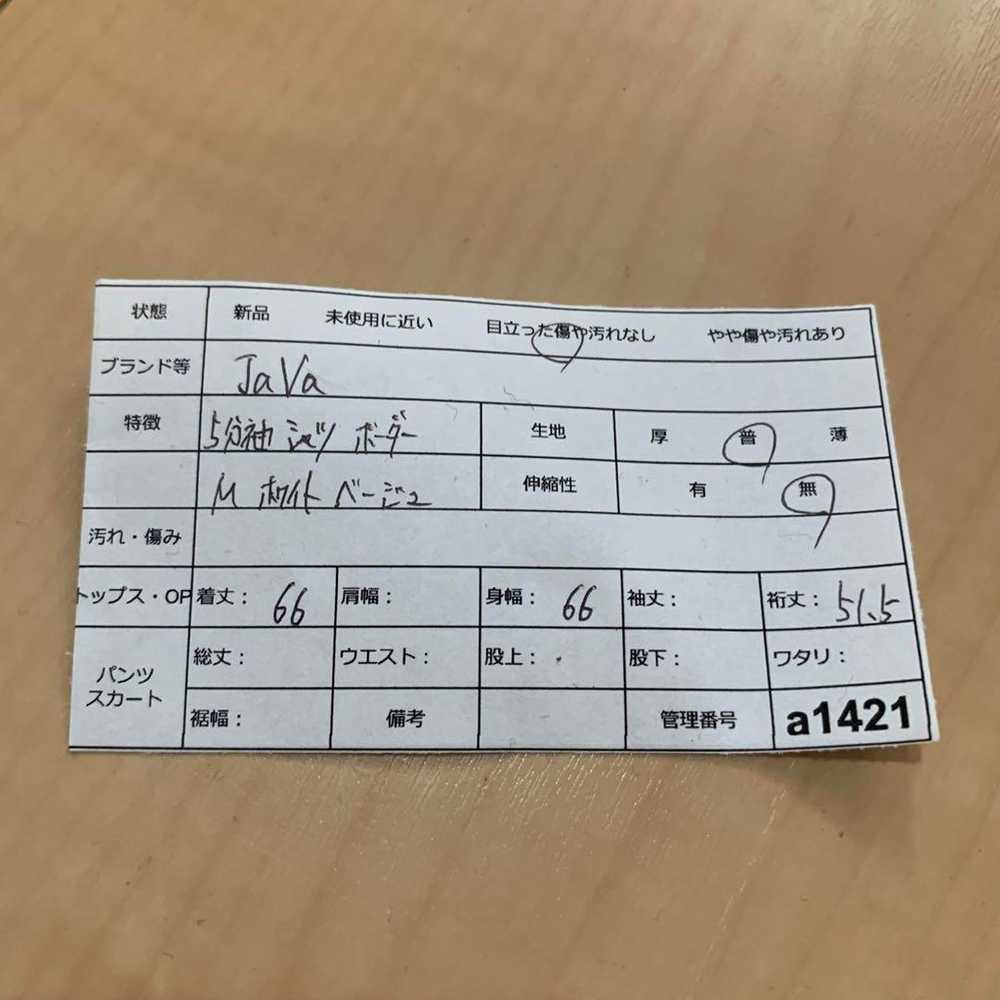 状態 新品 未使用に近い 目立った傷や汚れなし やや傷や汚れあり
ブランド等 JaVa
特徴 5分袖 シャツ ボーダー 生地 厚 普 薄
M ホワイト ベージュ 伸縮性 有 無
汚れ・傷み
トップス・OP 着丈: 66 肩幅: 身幅: 66 袖丈: 裄丈: 51.5
パンツ 総丈: ウエスト: 股上: 股下: ワタリ:
スカート 裾幅: 備考 管理番号 a1421